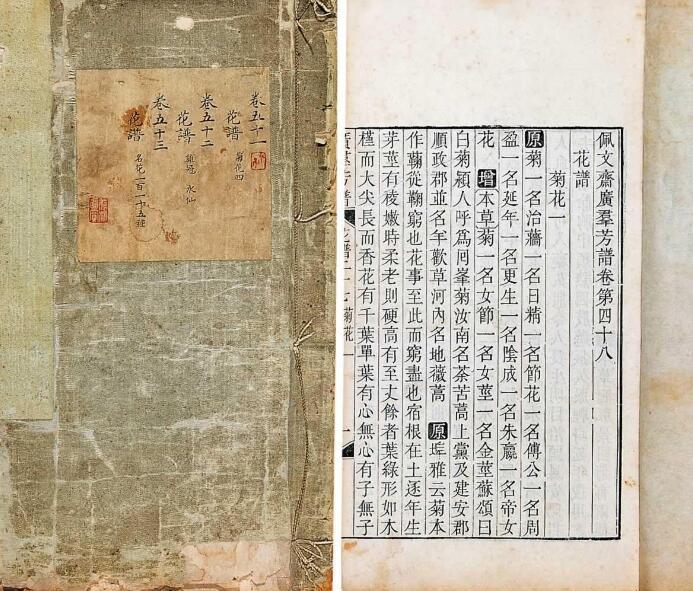 卷五十一
花譜 菊花四
卷五十二
花譜 雞冠 水仙
卷五十三
花譜 名花一百一十五種
佩文齋廣羣芳譜卷第四十八
花譜
菊花一
原菊一名治蘠一名日精一名節花一名傅公一名周
盈一名延年一名更生一名陰成一名朱嬴一名帝女
花 增本草菊一名女節一名女莖一名金莖蘇頌曰
白菊潁人呼爲囘峯菊汝南名荼苦蒿上黨及建安郡
順政郡並名年歡草河內名地薇蒿 原埤雅云菊本
作蘜從鞠窮也花事至此而窮盡也宿根在土逐年生
芽莖有棱嫩時柔老則硬高有至丈餘者葉綠形如木
槿而大尖長而香花有千葉單葉有心無心有子無子
菊花一